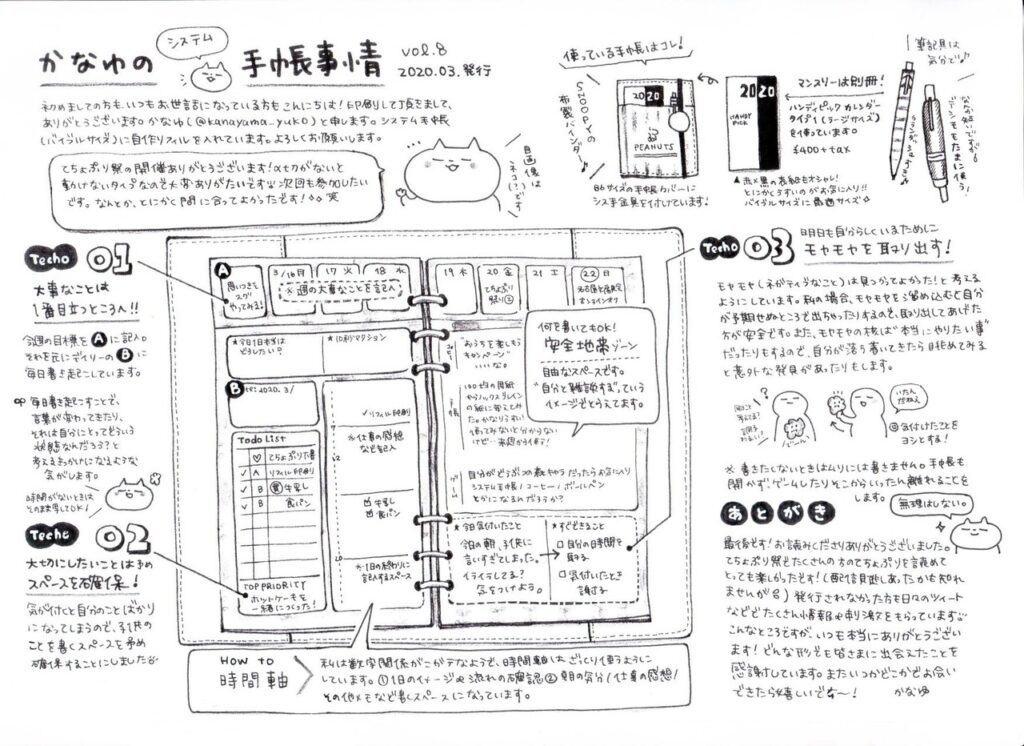 かなゆの システム 手帳事情 vol.8
2020.03.発行
初めましての方も、いつもお世話になっている方もこんにちは!印刷して頂きまして、
ありがとうございます。かなゆ(@kanayama_yuko)と申します。システム手帳
(バイブルサイズ)に自作リフィルを入れています。よろしくお願いします。
てちょぷり祭の開催ありがとうございます!〆切がないと
動けないタイプなので大変ありがたいです 次回も参加したい
です。なんとか、とにかく間に合ってよかったです! 笑
自画像は
ネコ(?)です
使っている手帳はコレ!
SNOOPYの
布製バインダー
2020
PEANUTS
B6サイズの手帳カバーに
シス手金具を付けています!
2020
HANDY
PICK
マンスリーは別冊!
ハンディピック カレンダー
タイプ1(ラージサイズ)
を使っています。
¥400+tax
▲赤×黒の表紙もオシャレ!
とにかくうすいのがお気に入り!!
バイブルサイズに最適サイズ☆
筆記具は
気分で♪
Techo 01
大事なことは
1番目立つところへ!!
今週の目標を A に記入。
それを元にデイリーの B に
毎日書き起こしています。
毎日書き起こすことで、
言葉が変わってきたり、
それは自分にとってどういう
状態なんだろう?と
考えるきっかけになるような
気がします。
時間がないときは
そのまま写してOK!
Techo 02
大切にしたいことは予め
スペースを確保!
気がつくと自分のことばかり
になってしまうので、子供の
ことを書くスペースを予め
確保することにしました
A
思いつきを
スグ
やってみる!
3/16 月
17 火
18 水
※週の大事なことを記入
★今日1日本当は
どうしたい?
★10秒アクション
B
2020. 3/
Todo List
♡ てちょぷり下書
✓ A リフィル印刷
✓ B 買 牛乳
✓ B 食パン
TOP PRIORITY
ホットケーキを
一緒につくった!
✓リフィル印刷
※仕事の感想
など記入
牛乳
食パン
※1日の終わりに
記入するスペース
19 木
20 金
てちょぷり
祭り
21 土
22 日
オンラインオフ
おうちを楽しもう
キャンペーン
いいな。
何を書いてもOK!
安全地帯ゾーン
自由なスペースです。
"自分と雑談する"っていう
イメージでとらえてます。
手帳
ゲーム
自分がどうぶつの森キャラだったらお気に入り
システム手帳/コーヒー/ボールペン
とかになるんだろうか?
★今日気付いたこと
今日の朝、子供に
言いすぎてしまった。
イライラしてる?
気をつけよう。
★すぐできること
□自分の時間を
取る
□気付いたとき
謝する
HOW TO
時間軸
私は数字関係がニガテなようで、時間軸は、ざっくり使うようにに
しています。①1日のイメージや流れの確認②朝の気分/仕事の感想/
その他メモなど書くスペースになっています。
Techo 03
明日も自分らしくいるために
モヤモヤを取り出す!
モヤモヤ(ネガティブなこと)は見つかってよかった!と考える
ようにしています。私の場合、モヤモヤを溜め込むと自分
が予期せぬところで出ちゃったりするので、取り出してあげた
方が安全です。また、モヤモヤの核は"本当にやりたい事"
だったりもするので、自分が落ち着いてきたら眺めてみる
と意外な発見があったりもします。
◎気付けたことを
ヨシとする!
※書きたくないときはムリには書きません。手帳も
開かずゲームしたりそこからいったん離れることを
します。
無理はしない。
あとがき
最後です!お読みくださりありがとうございました。
てちょぷり祭でたくさんの方のてちょぷりを読めて
とっても楽しかったです!(配信見逃しあったかも知れ
ませんが) 発行されなかった方も日々のツイート
などでたくさん情報や刺激をもらっています
こんなところですが、いつも本当にありがとうござい
ます!どんな形でも皆さまに出会えたことを
感謝しています。またいつかどこかでお会い
できたら嬉しいです〜!
かなゆ